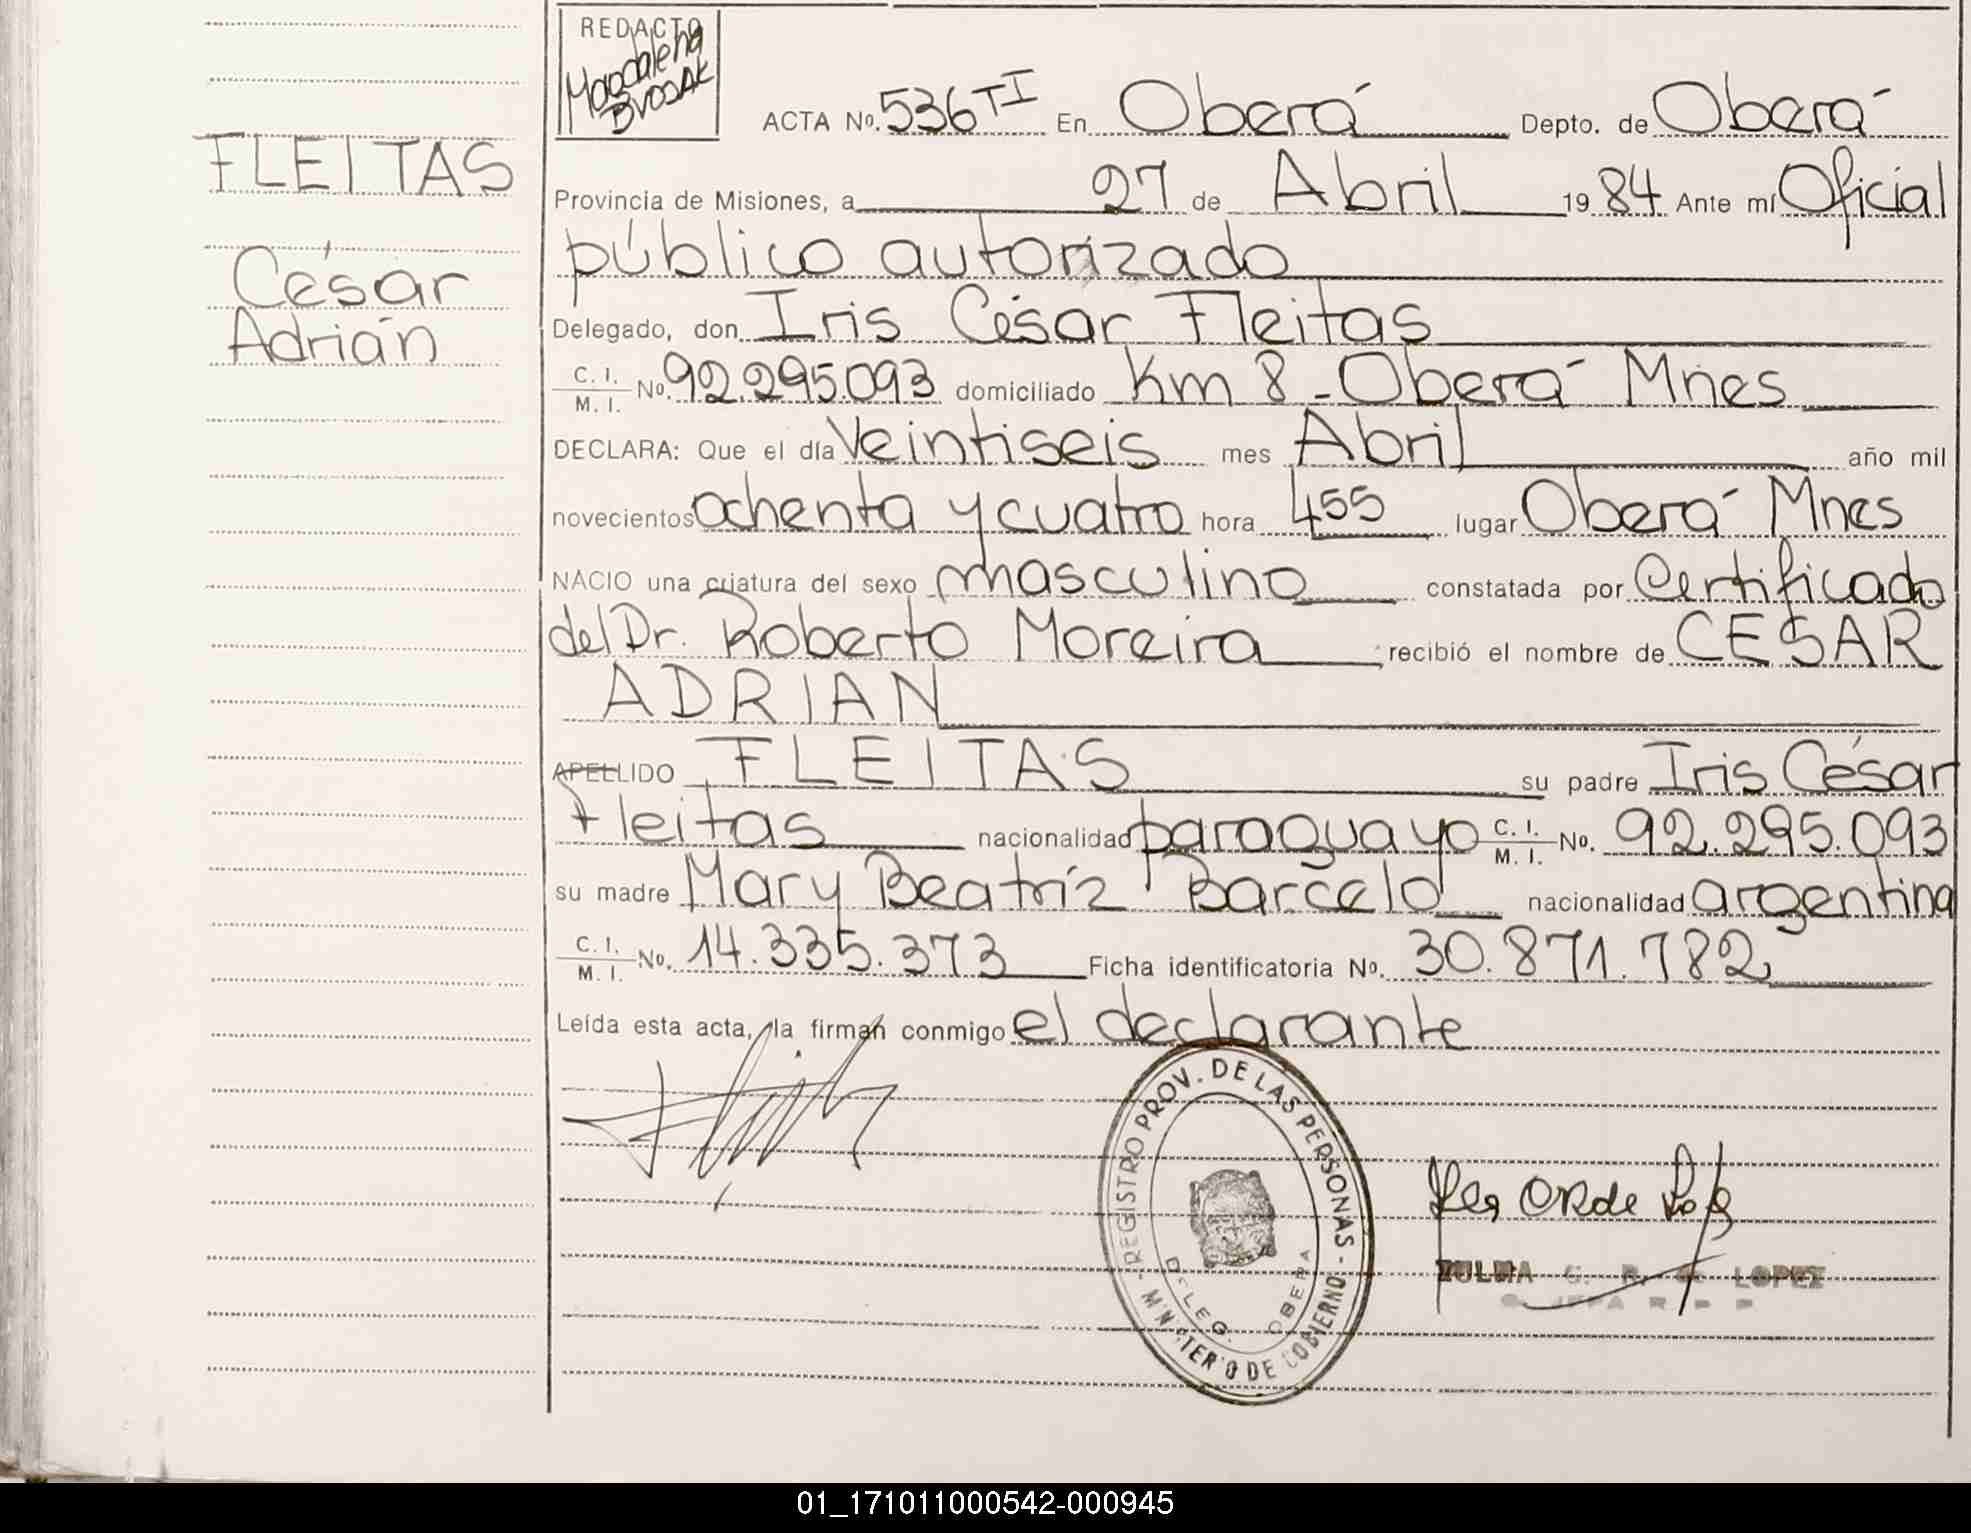 REDACTO
Magdalena
ACTA No. 536 TI En Oberá Depto. de Oberá
FLEITAS
César
Adrián
Provincia de Misiones, a 27 de Abril 1984 Ante mí Oficial
público autorizado
Delegado, don Iris César Fleitas
C. I. / M. I. No. 92.295.093 domiciliado Km 8 - Oberá Mnes
DECLARA: Que el día Veintiseis mes Abril año mil
novecientos ochenta y cuatro hora 455 lugar Oberá Mnes
NACIO una criatura del sexo masculino constatada por Certificado
del Dr. Roberto Moreira recibió el nombre de CESAR
ADRIAN
APELLIDO FLEITAS su padre Iris César
Fleitas nacionalidad paraguayo C. I. / M. I. No. 92.295.093
su madre Mary Beatríz Barcelo nacionalidad argentina
C. I. / M. I. No. 14.335.373 Ficha identificatoria No. 30.871.782
Leída esta acta, la firman conmigo el declarante
REGISTRO PROV. DE LAS PERSONAS - MINISTERIO DE GOBIERNO -
DELEG. OBERA
ZULMA G. R. de LOPEZ
01_171011000542-000945